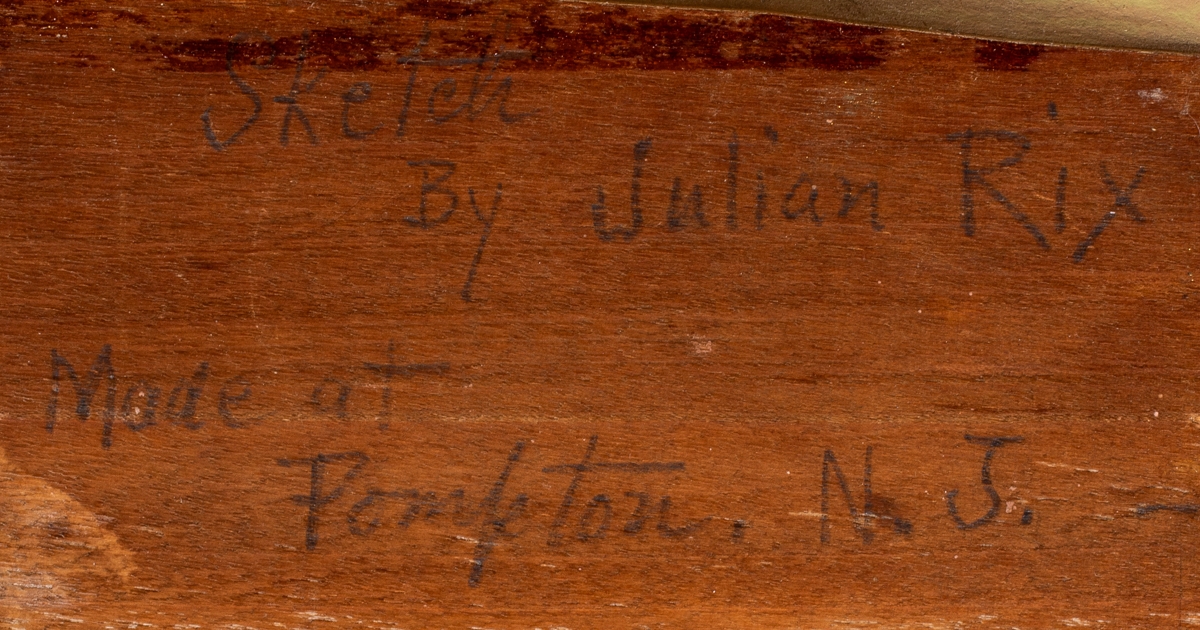 Sketch
By Julian Rix
Made at
Pompton, N.J. —